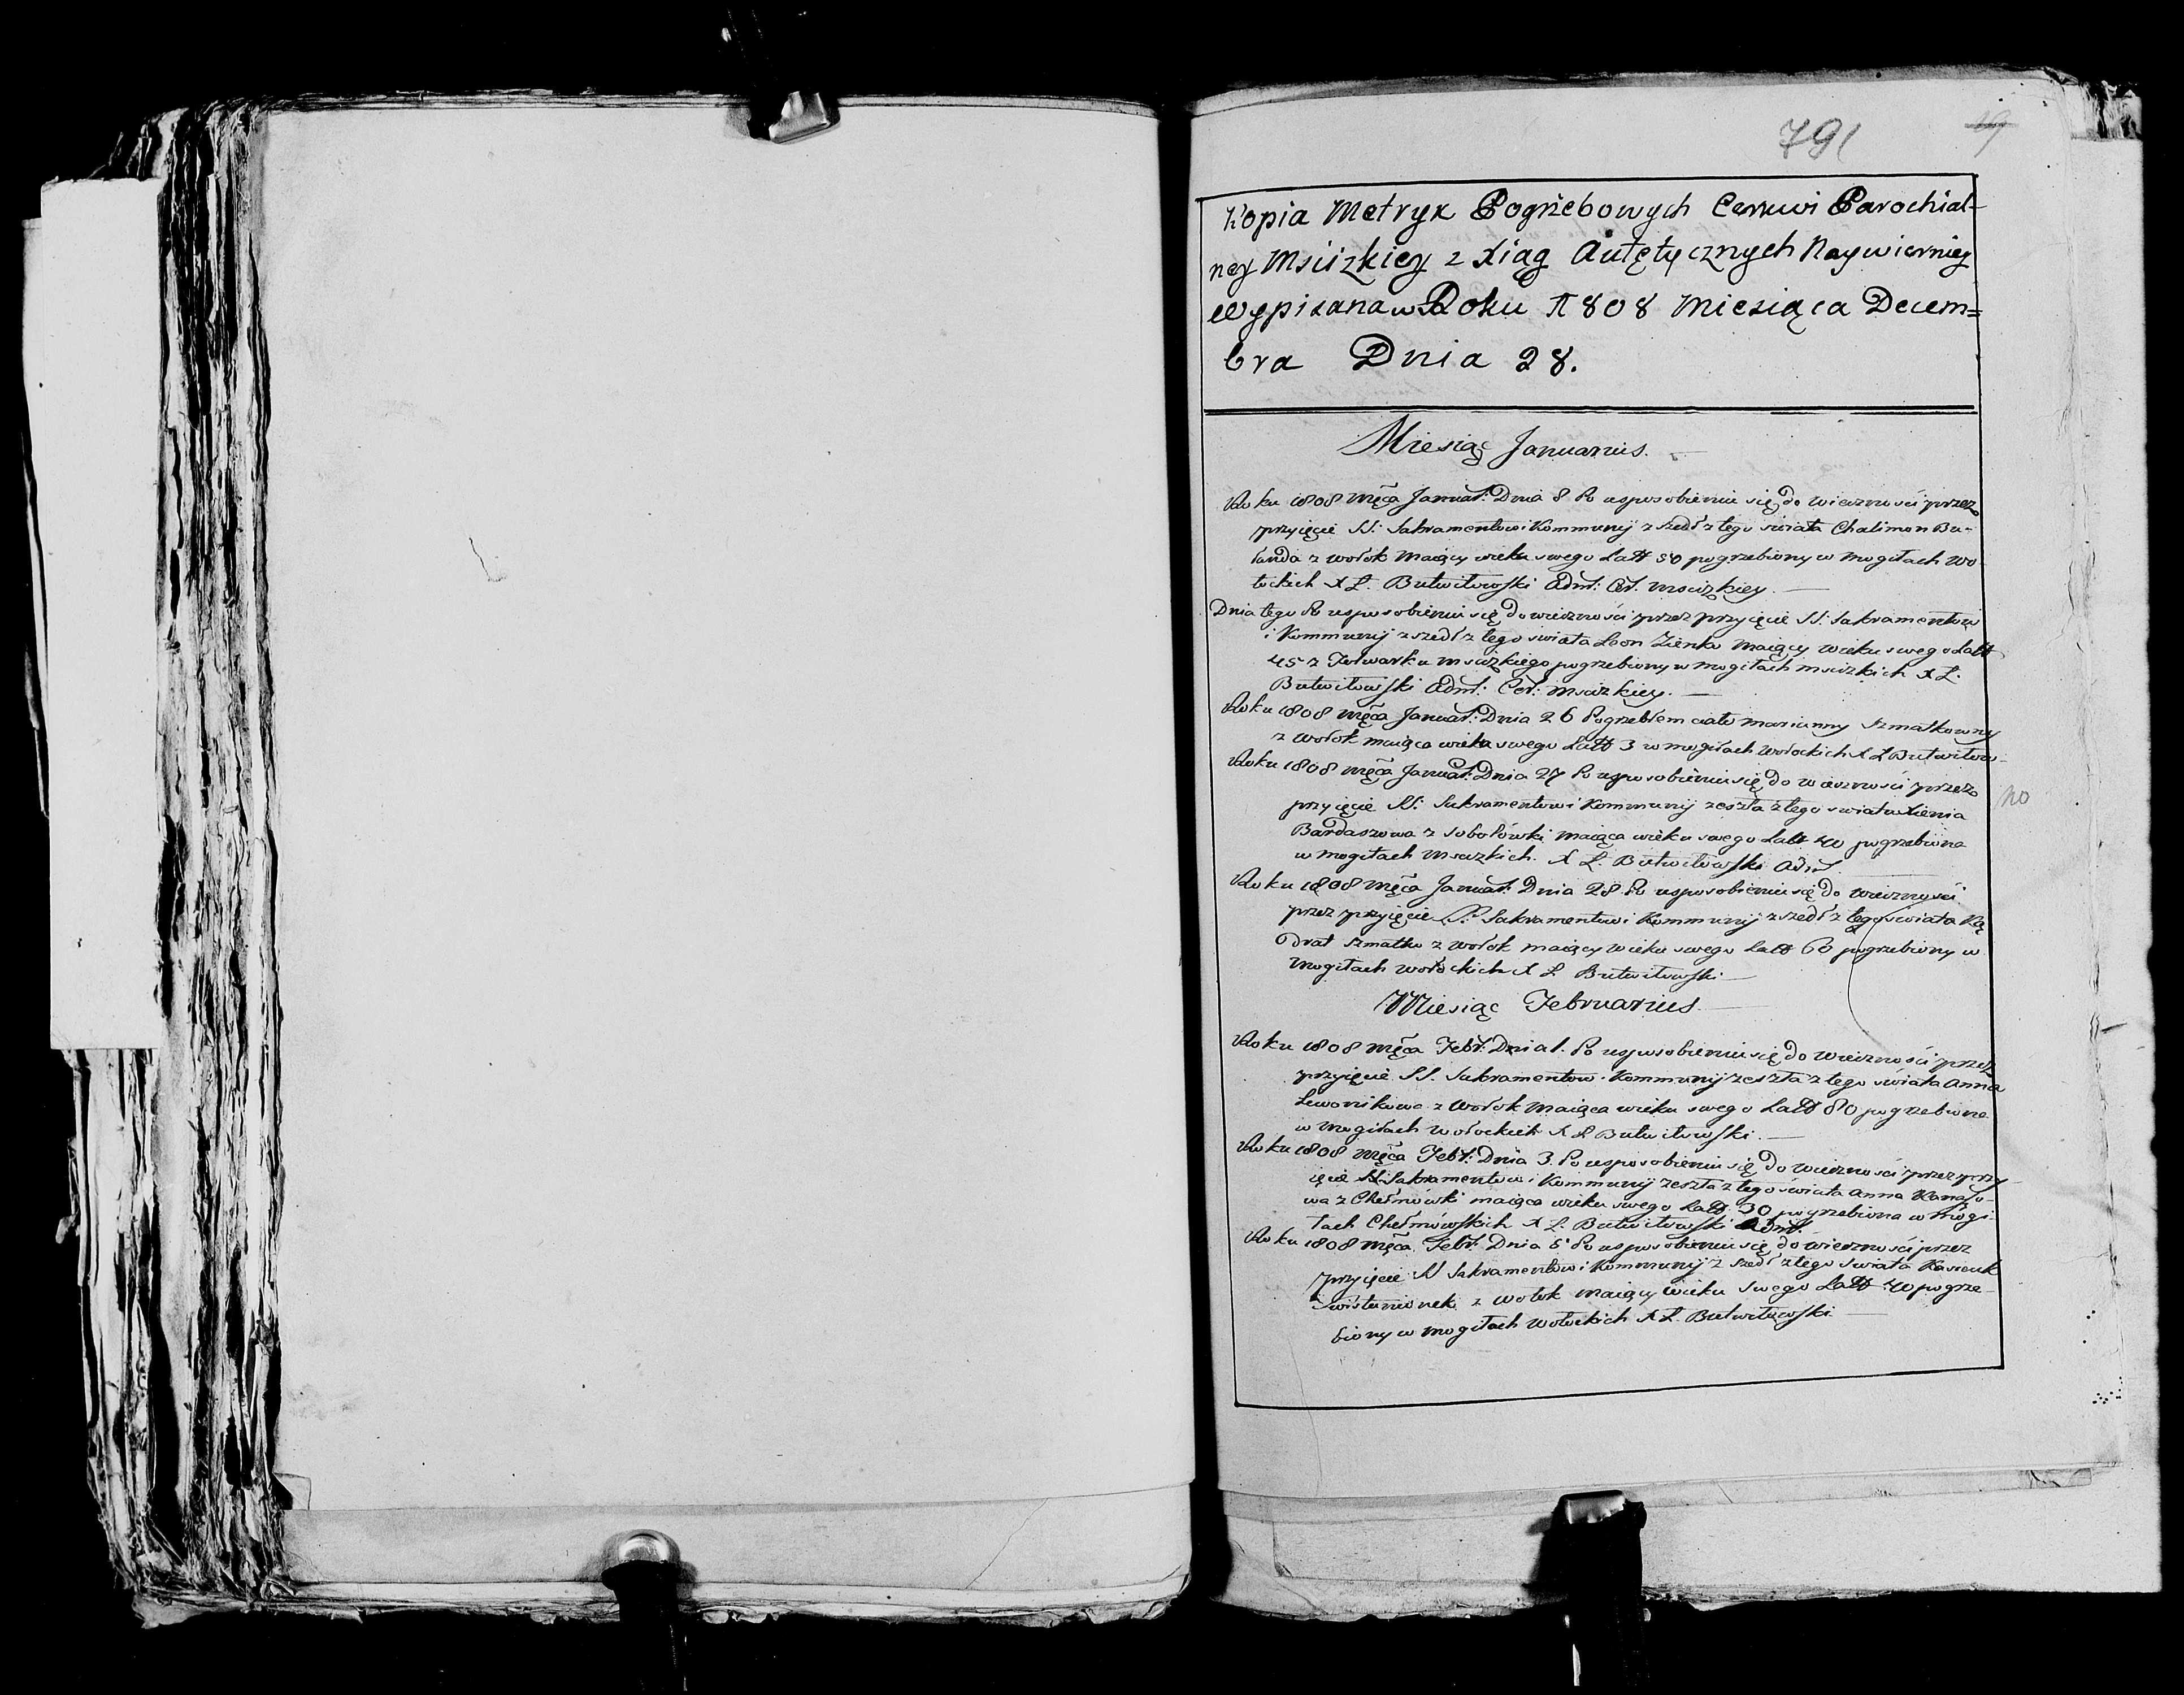 791 19
Kopia Metryk Pogrzebowych Cerkwi Parochial-
ney Mscizkiey z Xiąg Autętycznych Naywierniey
Wypisana w Roku 1808 Miesiąca Decem=
bra Dnia 28.
Miesiąc Januarius.
Roku 1808 Męca Januar: Dnia 8 Po usposobieniu się do wieczności przez
przyięcie SS: Sakramentow i Kommunij zszedł z tego swiata Chalimon Bu-
łanda z Wołok maiący wieku swego Latt 50 pogrzebiony w mogiłach Wo
łockich X L. Butwiłowski Adm: Cer. Mscizkiey.
Dnia tego Po usposobieniu się do wieczności przez przyięcie SS: Sakramentow
i Kommunij zszedł z tego swiata Leon Zienko maiący wieku swego Latt
45 z Folwarku Mscizkiego pogrzebiony w mogiłach Mscizkich X L.
Butwiłowski Adm: Cer: Mscizkiey.
Roku 1808 Męca Januar: Dnia 26 Pogrzebłem ciało Marianny Szmatkowny
z Wołok maiąca wieku swego Latt 3 w mogiłach Wołockich X L Butwiłow
Roku 1808 Męca Januar: Dnia 27 Po usposobieniu się do wieczności przez
przyięcie SS: Sakramentow i Kommunij zeszła z tego swiata Xienia
Bardaszowa z Sobolówki maiąca wieku swego Latt 40 pogrzebiona
w mogiłach Mscizkich. X L. Butwiłowski Adm.
no
Roku 1808 Męca Januar: Dnia 28 Po usposobieniu się do wieczności
przez przyięcie SS Sakramentow i Kommunij zszedł z tego swiata Ką
drat Szmatko z Wołok maiący wieku swego Latt 60 pogrzebiony w
mogiłach Wołockich X L Butwiłowski
Miesiąc Februarius.
Roku 1808 Męca Febr: Dnia 1. Po usposobieniu się do wieczności przez
przyięcie SS. Sakramentow i Kommunij zeszła z tego świata Anna
Lewonikowa z Wołok maiąca wieku swego Latt 80 pogrzebiona
w mogiłach Wołockich X L Butwiłowski.
Roku 1808 Męca Febr: Dnia 3. Po usposobieniu się do wieczności przez przy
ięcie SS: Sakramentow i Kommunij zeszła z tego świata Anna
wa z Chełmówki maiąca wieku swego Latt 30 pogrzebiona w mogi-
łach Chełmówskich X L. Butwiłowski Adm.
Roku 1808 Męca Febr: Dnia 5 Po usposobieniu się do wieczności przez
przyięcie SS Sakramentow i Kommunij zszedł z tego swiata
Swistunionek z Wołok maiący wieku swego Latt 40 pogrze-
biony w mogiłach Wołockich X L. Butwiłowski